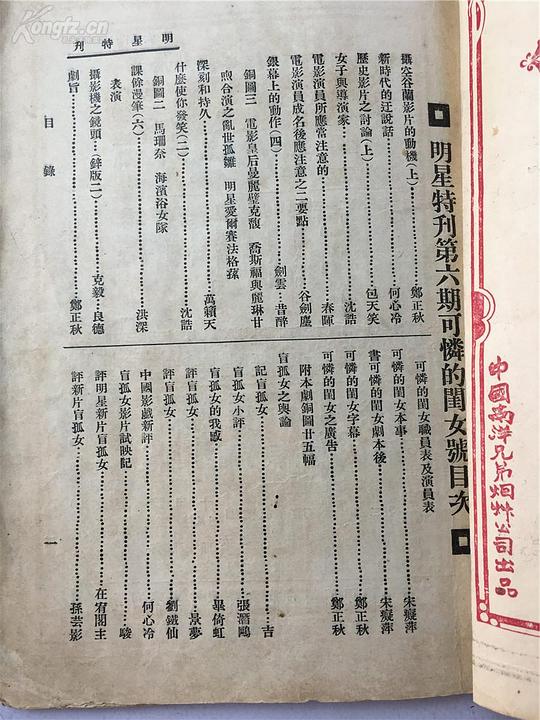 Kongfz.com
明星特刊第六期可憐的閨女號目次
攝空谷蘭影片的動機(上)……鄭正秋
新時代的迂說話……何心冷
歷史影片之討論(上)……包天笑
女子與導演家……沈誥
電影演員所應當注意的……春暉
電影演員成名後應注意之二要點……谷劍塵
銀幕上的動作(四)……劍雲…昔醉
銅圖三 電影皇后曼麗壁克馥 喬斯福與麗琳甘
煦合演之亂世孤雛 明星愛爾賽法格蓀
深刻和持久……萬籟天
什麼使你發笑(二)……沈誥
銅圖二 馬瑞奈 海濱浴女隊
課餘漫筆(六)……洪深
表演
攝影機之鏡頭…(鋅版二)……克毅…良德
劇旨……鄭正秋
可憐的閨女職員表及演員表
可憐的閨女本事……宋癡萍
書可憐的閨女劇本後……鄭正秋
可憐的閨女字幕……宋癡萍
可憐的閨女之廣告……鄭正秋
附本劇銅圖廿五幅
盲孤女之輿論
記盲孤女……吉
盲孤女小評……張潛鷗
盲孤女的我感……畢倚虹
評盲孤女……景夢
評盲孤女……劉鐵仙
中國影戲新評……何心冷
盲孤女影片試映記……駿
評明星新片盲孤女……在宥閣主
評新片盲孤女……孫芸影
明星特刊
目錄
一
中國南洋兄弟烟艸公司出品